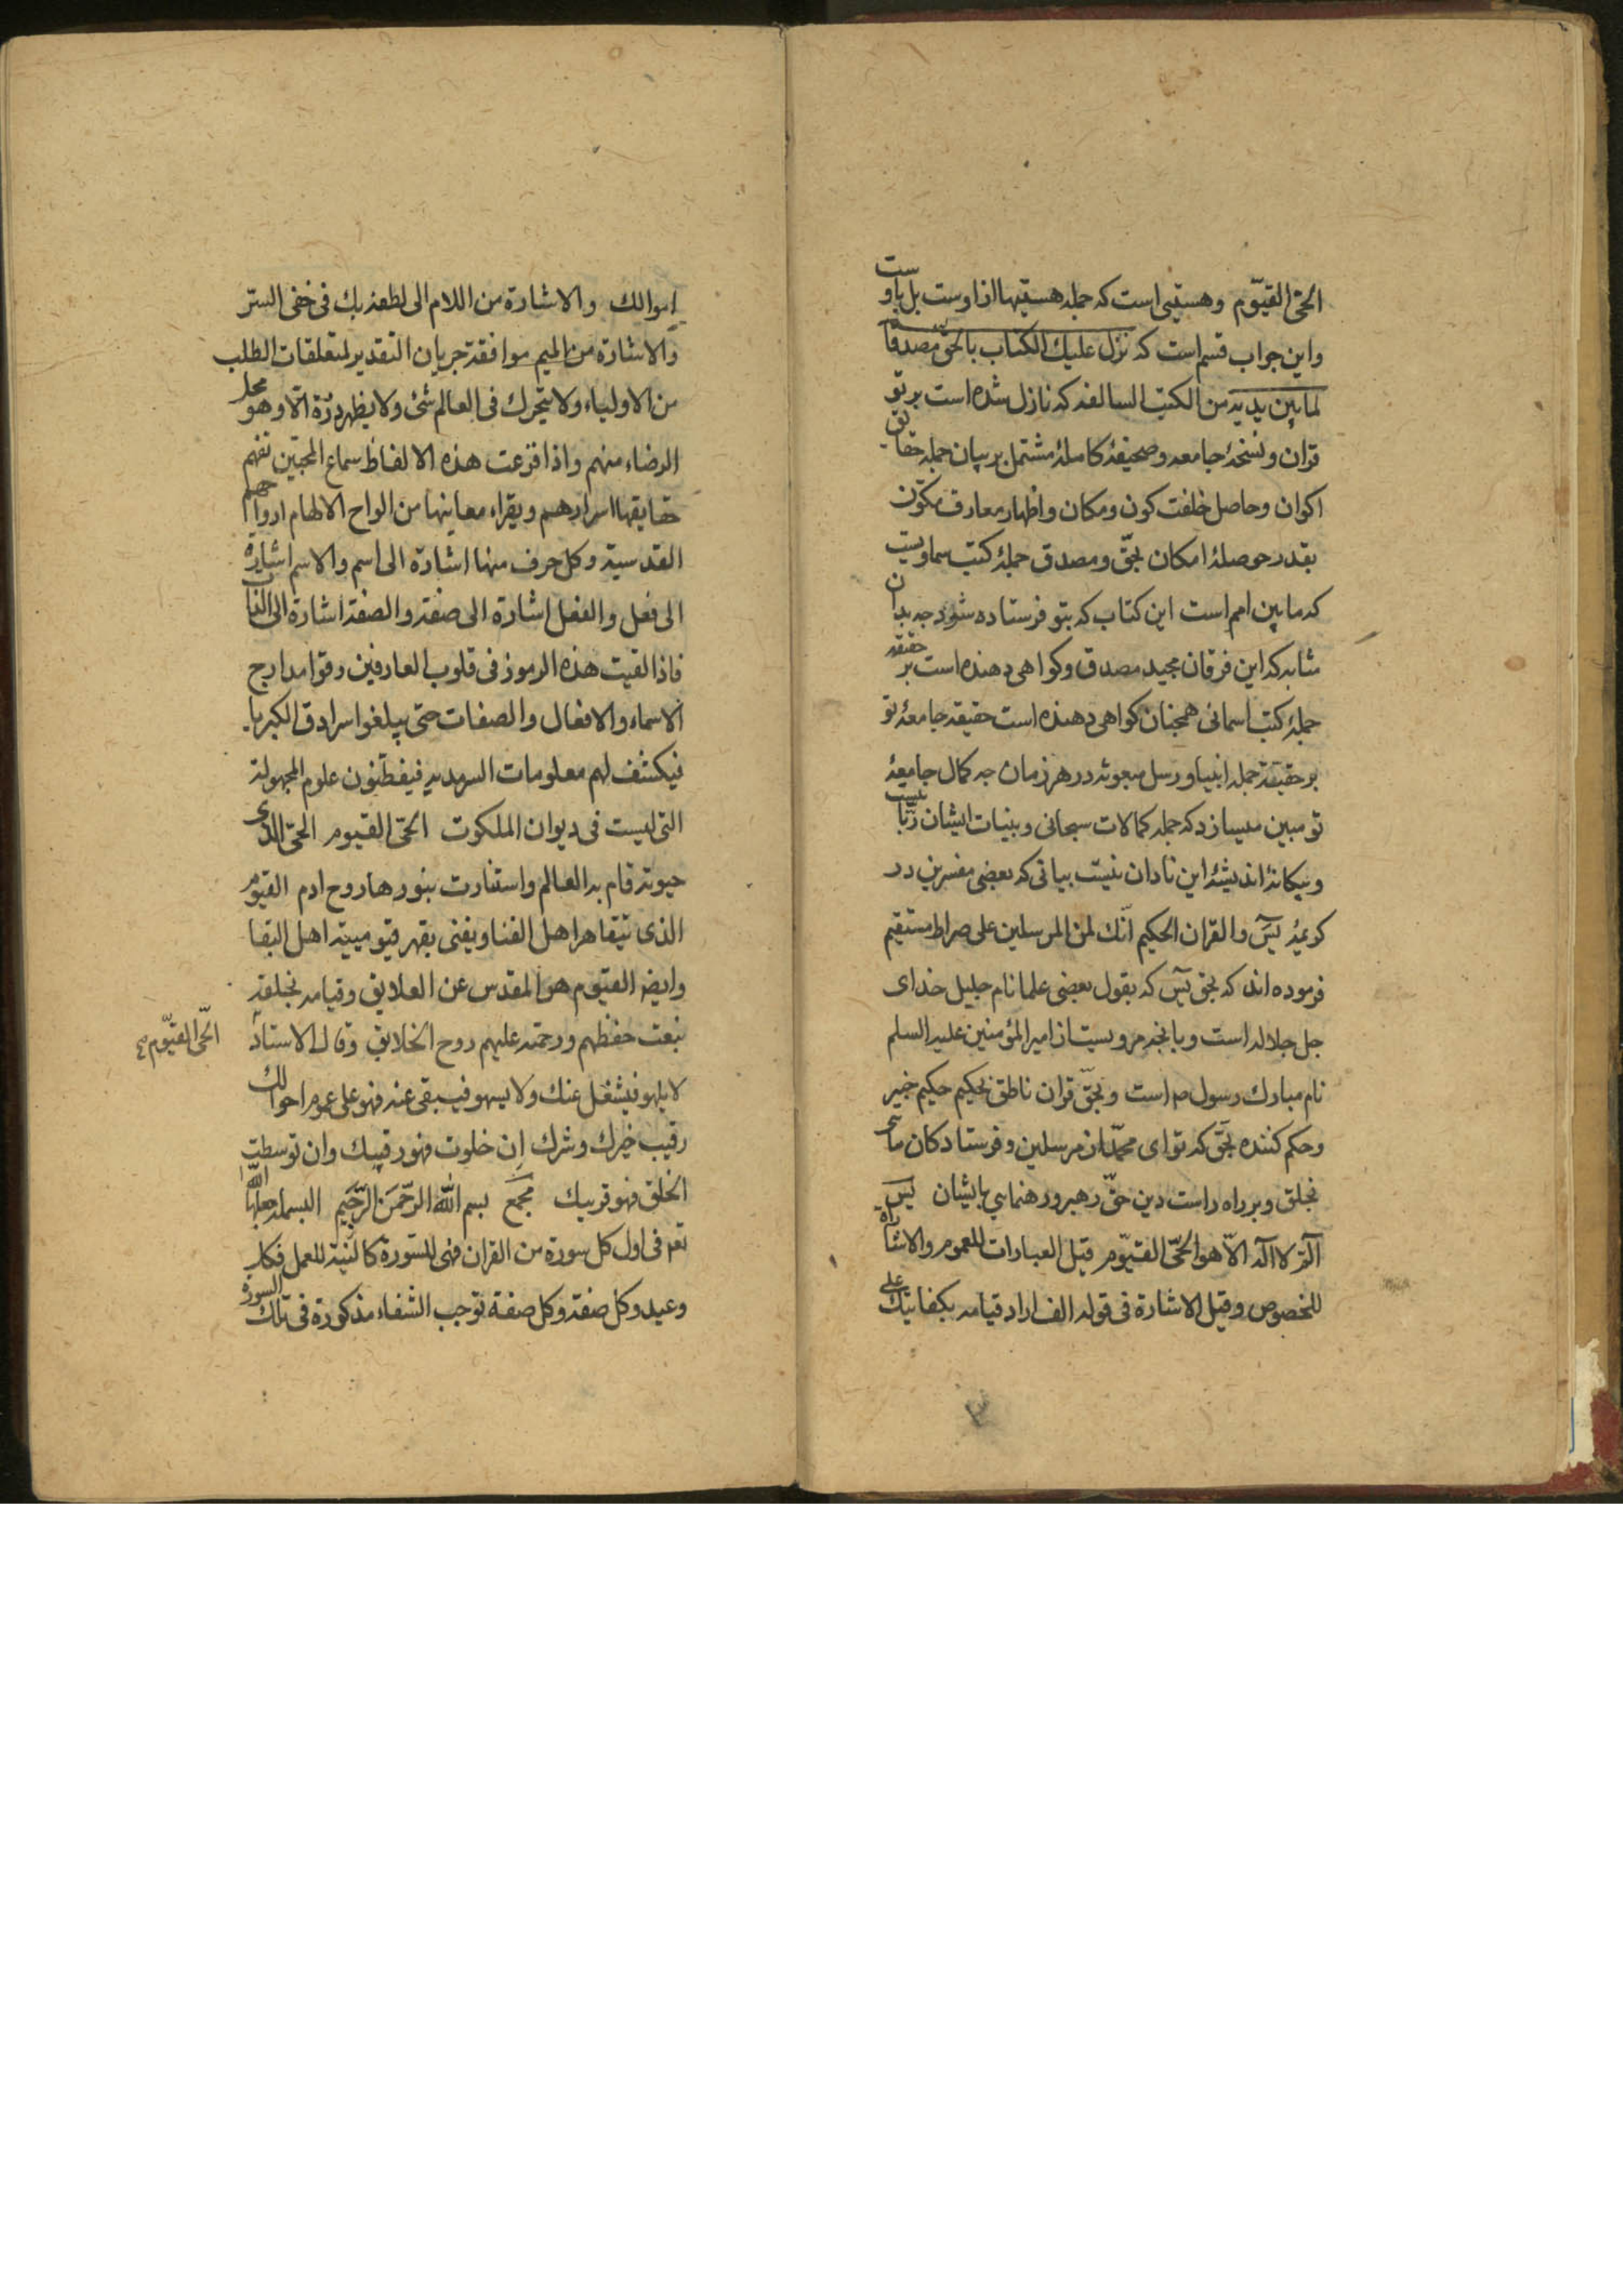 الحیّ القیّوم وهستیی است که جمله هستیها از اوست بل باوست
واین جواب قسم است که نزّل علیك الکتاب بالحقّ مصدقا
لما بین یدیه من الکتب السالفه که نازل شده است بر تو
قران ونسخهٔ جامعه وصحیفهٔ کاملهٔ مشتمل بر بیان جمله حقایق
اکوان وحاصل خلقت کون ومکان واظهار معارف مکوّن
بقدر حوصلهٔ امکان بحقّ ومصدق جملهٔ کتب سماویست
که مابین امم است این کتاب که بتو فرستاده شود چه بدان
مثابه که این فرقان مجید مصدق وکواهی دهنده است بر حقیقه
جملهٔ کتب اسمانی همچنان کواهی دهنده است حقیقه جامعهٔ تو
بر حقیقة جمله انبیا ورسل مبعوثه در هر زمان چه کمال جامعهٔ
تو مبین میسازد که جمله کمالات سبحانی وبنیات ایشان
وبیکانهٔ اندیشهٔ این نادان نیست بیانی که بعضی مفسرین در
کریمهٔ یسٓ والقران الحکیم انّك لمن المرسلین علی صراط مستقیم
فرموده اند که بحق یسٓ که بقول بعضی علما نام جلیل خدای
جل جلاله است وبانچه مرویست از امیر المؤمنین علیه السلم
نام مبارك رسول ص است وبحقّ قران ناطق بحکیم حکیم خبیر
وحکم کننده بحقّ که تو ای محمّد از مرسلین وفرستادکان مائی
بخلق وبر راه راست دین حقّ رهبر ورهنمایی بایشان یسٓ
آلمّ لا اله الاّ هو الحیّ القیّوم قیل العبارات للعموم والاشارة
للخصوص وقیل الاشارة فی قوله الف اراد قیامه بکفایتك علی
اموالك والاشارة من اللام الی لطفه بك فی خفی الستر
والاشارة من المیم موافقة جریان التقدیر لمتعلقات الطلب
من الاولیاء ولا یتحرك فی العالم شئ ولا یظهر ذرّة الّا وهو محل
الرضاء منهم واذا قرعت هذه الالفاظ سماع المحبّین تفهم
حقایقها اسرارهم ویقراء معاینها من الواح الالهام ارواحهم
القدسیة وکل حرف منها اشارة الی اسم والاسم اشارة
الی فعل والفعل اشارة الی صفة والصفة اشارة الی الذات
فاذا القیت هذه الرموز فی قلوب العارفین رقوا مدارج
الاسماء والافعال والصفات حتی یبلغوا سرادق الکبریا
فیکشف لهم معلومات السرمدیه فیفطنون علوم المجهولة
التی لیست فی دیوان الملکوت الحیّ القیوم الحیّ الذی
حیوته قام به العالم واستنارت بنورها روح ادم القیّوم
الذی بقاهر اهل الفنا ویفنی بقهر قیومیته اهل البقا
وایضا القیّوم هو المقدس عن العلایق وقیامه بخلقه
بنعت حفظهم ورحمته علیهم روح الخلایق وقال الاستاد
الحیّ القیّوم
لا یلهو فیشغل عنك ولا یسهو فیبقی عنه فهو علی عموم احوالك
رقیب خیرك وشرك ان خلوت فهو رقیبك وان توسطت
الخلق فهو قریبك مجمع بسم الله الرّحمن الرّحیم البسملة جعلها الله
تع فی اول کل سورة من القران فهی للسّورة کالنیة للعمل فکل
وعید وکل صفة وکل صفة توجب الشفاء مذکورة فی تلك السورة